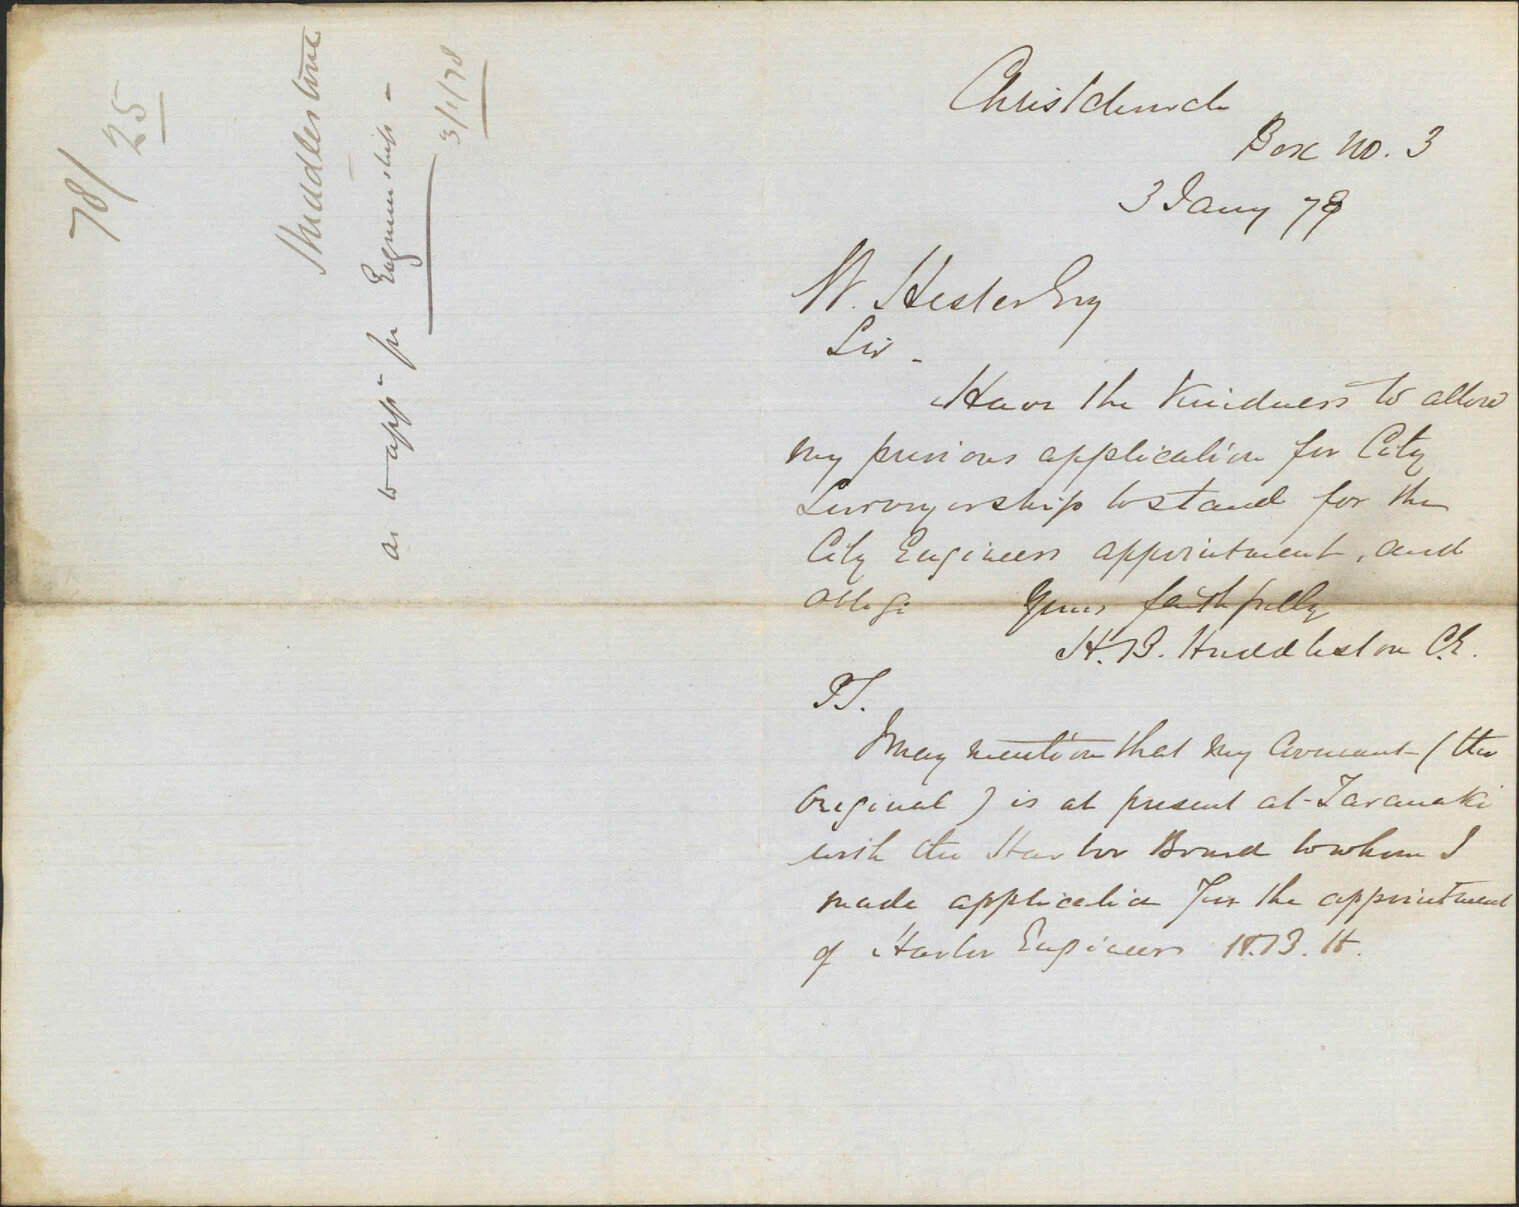 78/25
Huddlestone
as to appn for Engineership -
3/1/78
Christchurch
Box No. 3
3 Jany 78
W. Hester Esq
Sir -
Have the kindness to allow
my previous application for City
Surveyorship to stand for the
City Engineers appointment, and
oblige Yours faithfully
H.B. Huddleston C.E.
PS.
I may mention that my (the
original) is at present at Taranaki
with the Harbor Board to whom I
made application for the appointment
of Harbor Engineers H.B.H.